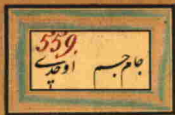 559.
جام جم
اوحدی